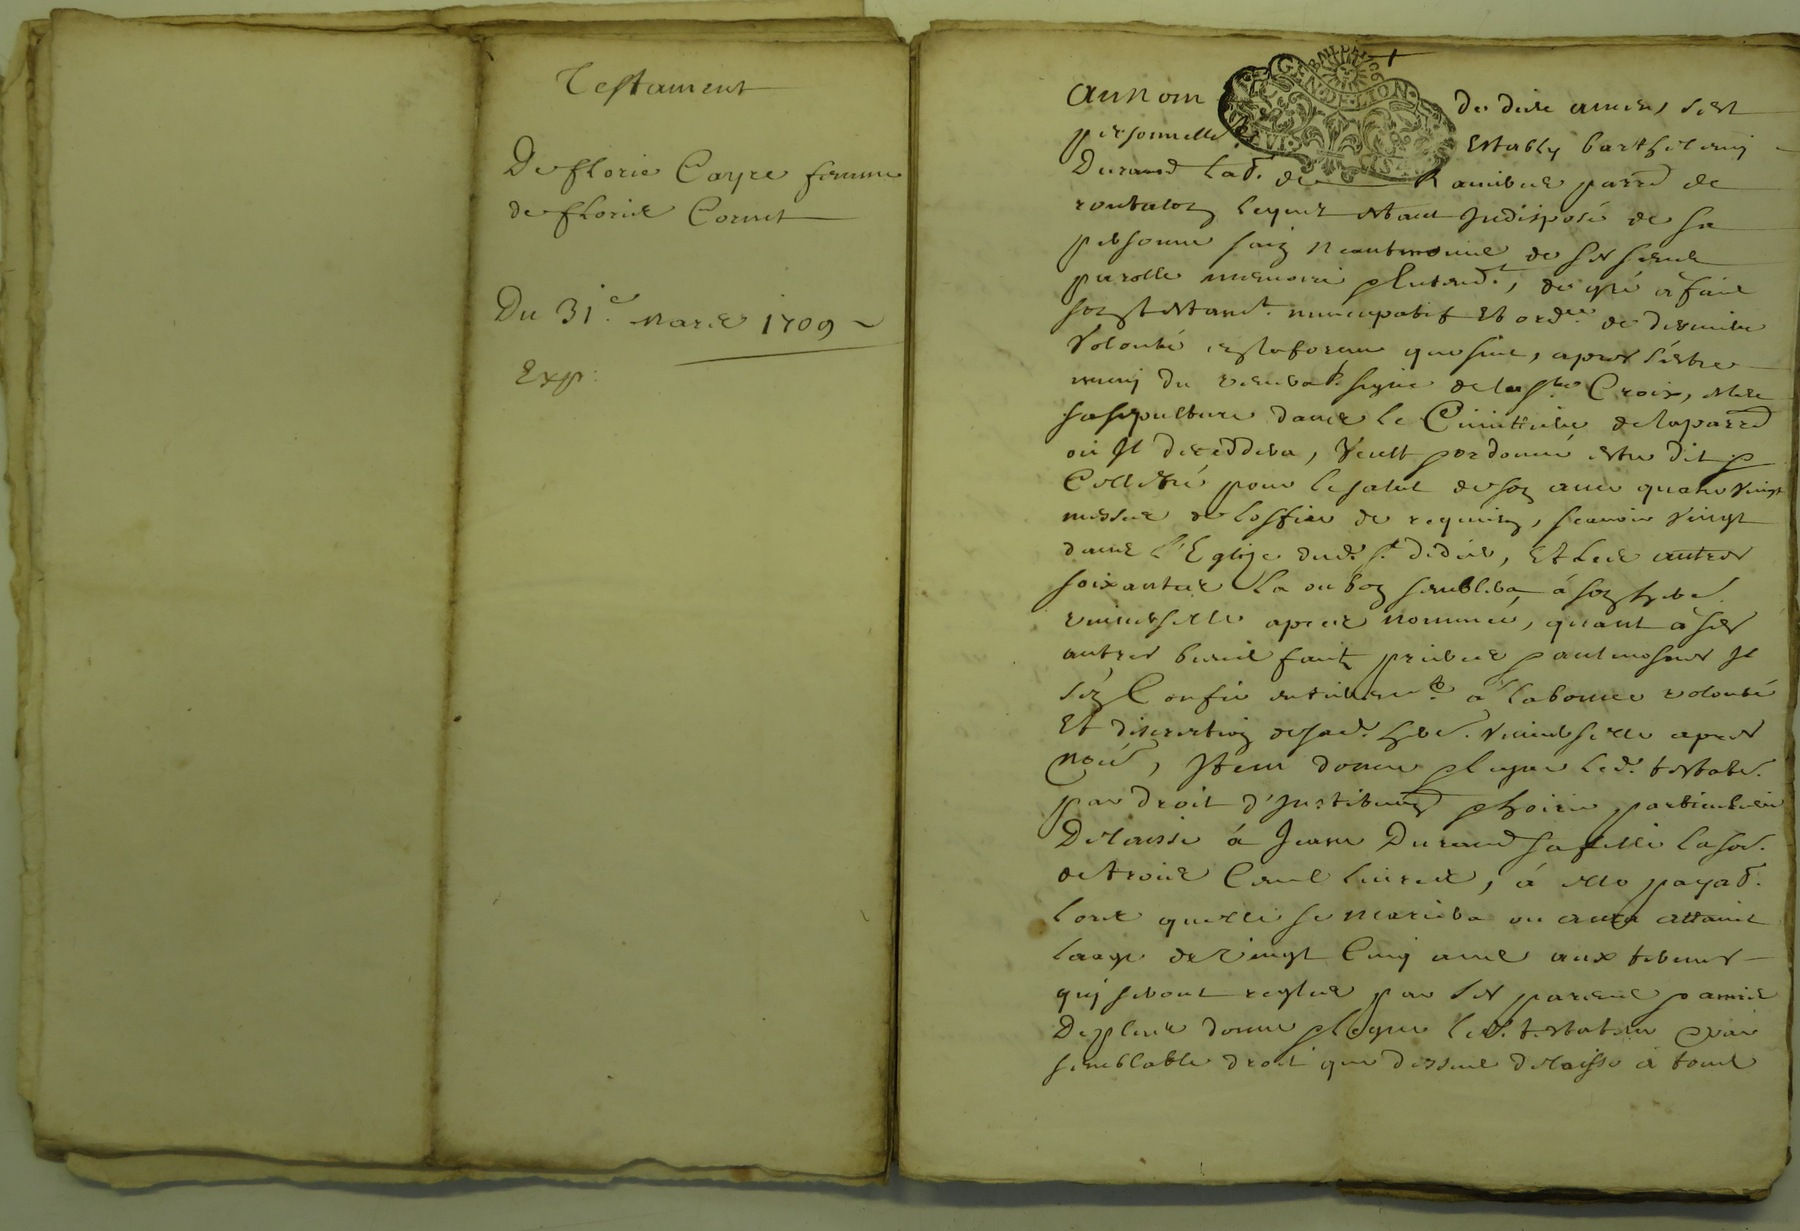 Testament
De florie Cayre femme
de florie Cornet
Du 31e. mars 1709
Exp:
GEN. DE. LION.
au nom de dieu amen, s'est
personnelle estably barthelemy
Durand lab. de parre de
rontalon lequel estant Indisposé de sa
personne sain neantmoins de ses sens
parolle memoire &
son testamt. nuncupatif et ordce. de derniere
volonté en la forme que suit, apres s'estre
muny du venerab. signe de la ste. Croix, eslit
sa sepulture dans le Cimitiere de la parre
où Il decedera, veult & ordonne estre dit &
Celebré pour le salut de son ame quatre vingt
messes de loffice de requiem, scavoir vingt
dans l'Eglize dud. st. didier, Et les autres
soixantes la ou bon semblera à son
universelle apres nommée, quant à ses
autres biens faits prieres & aulmosnes Il
s'en Confie entieremt. à la bonne volonté
Et discretion de sad. universelle apres
née, Item donne & legue led. testat.
par droit d'Institution & hoirie particuliere
Delaisse à Jeane Durand sa fille la so.
de trois Cens livres, à elle payab.
lors quelle se mariera ou aura attaint
laage de vingt Cinq ans aux termes
qui seront reglés par ses parens & amis
De plus donne & legue led. testateur & par
semblable droit que dessus delaisse à tous